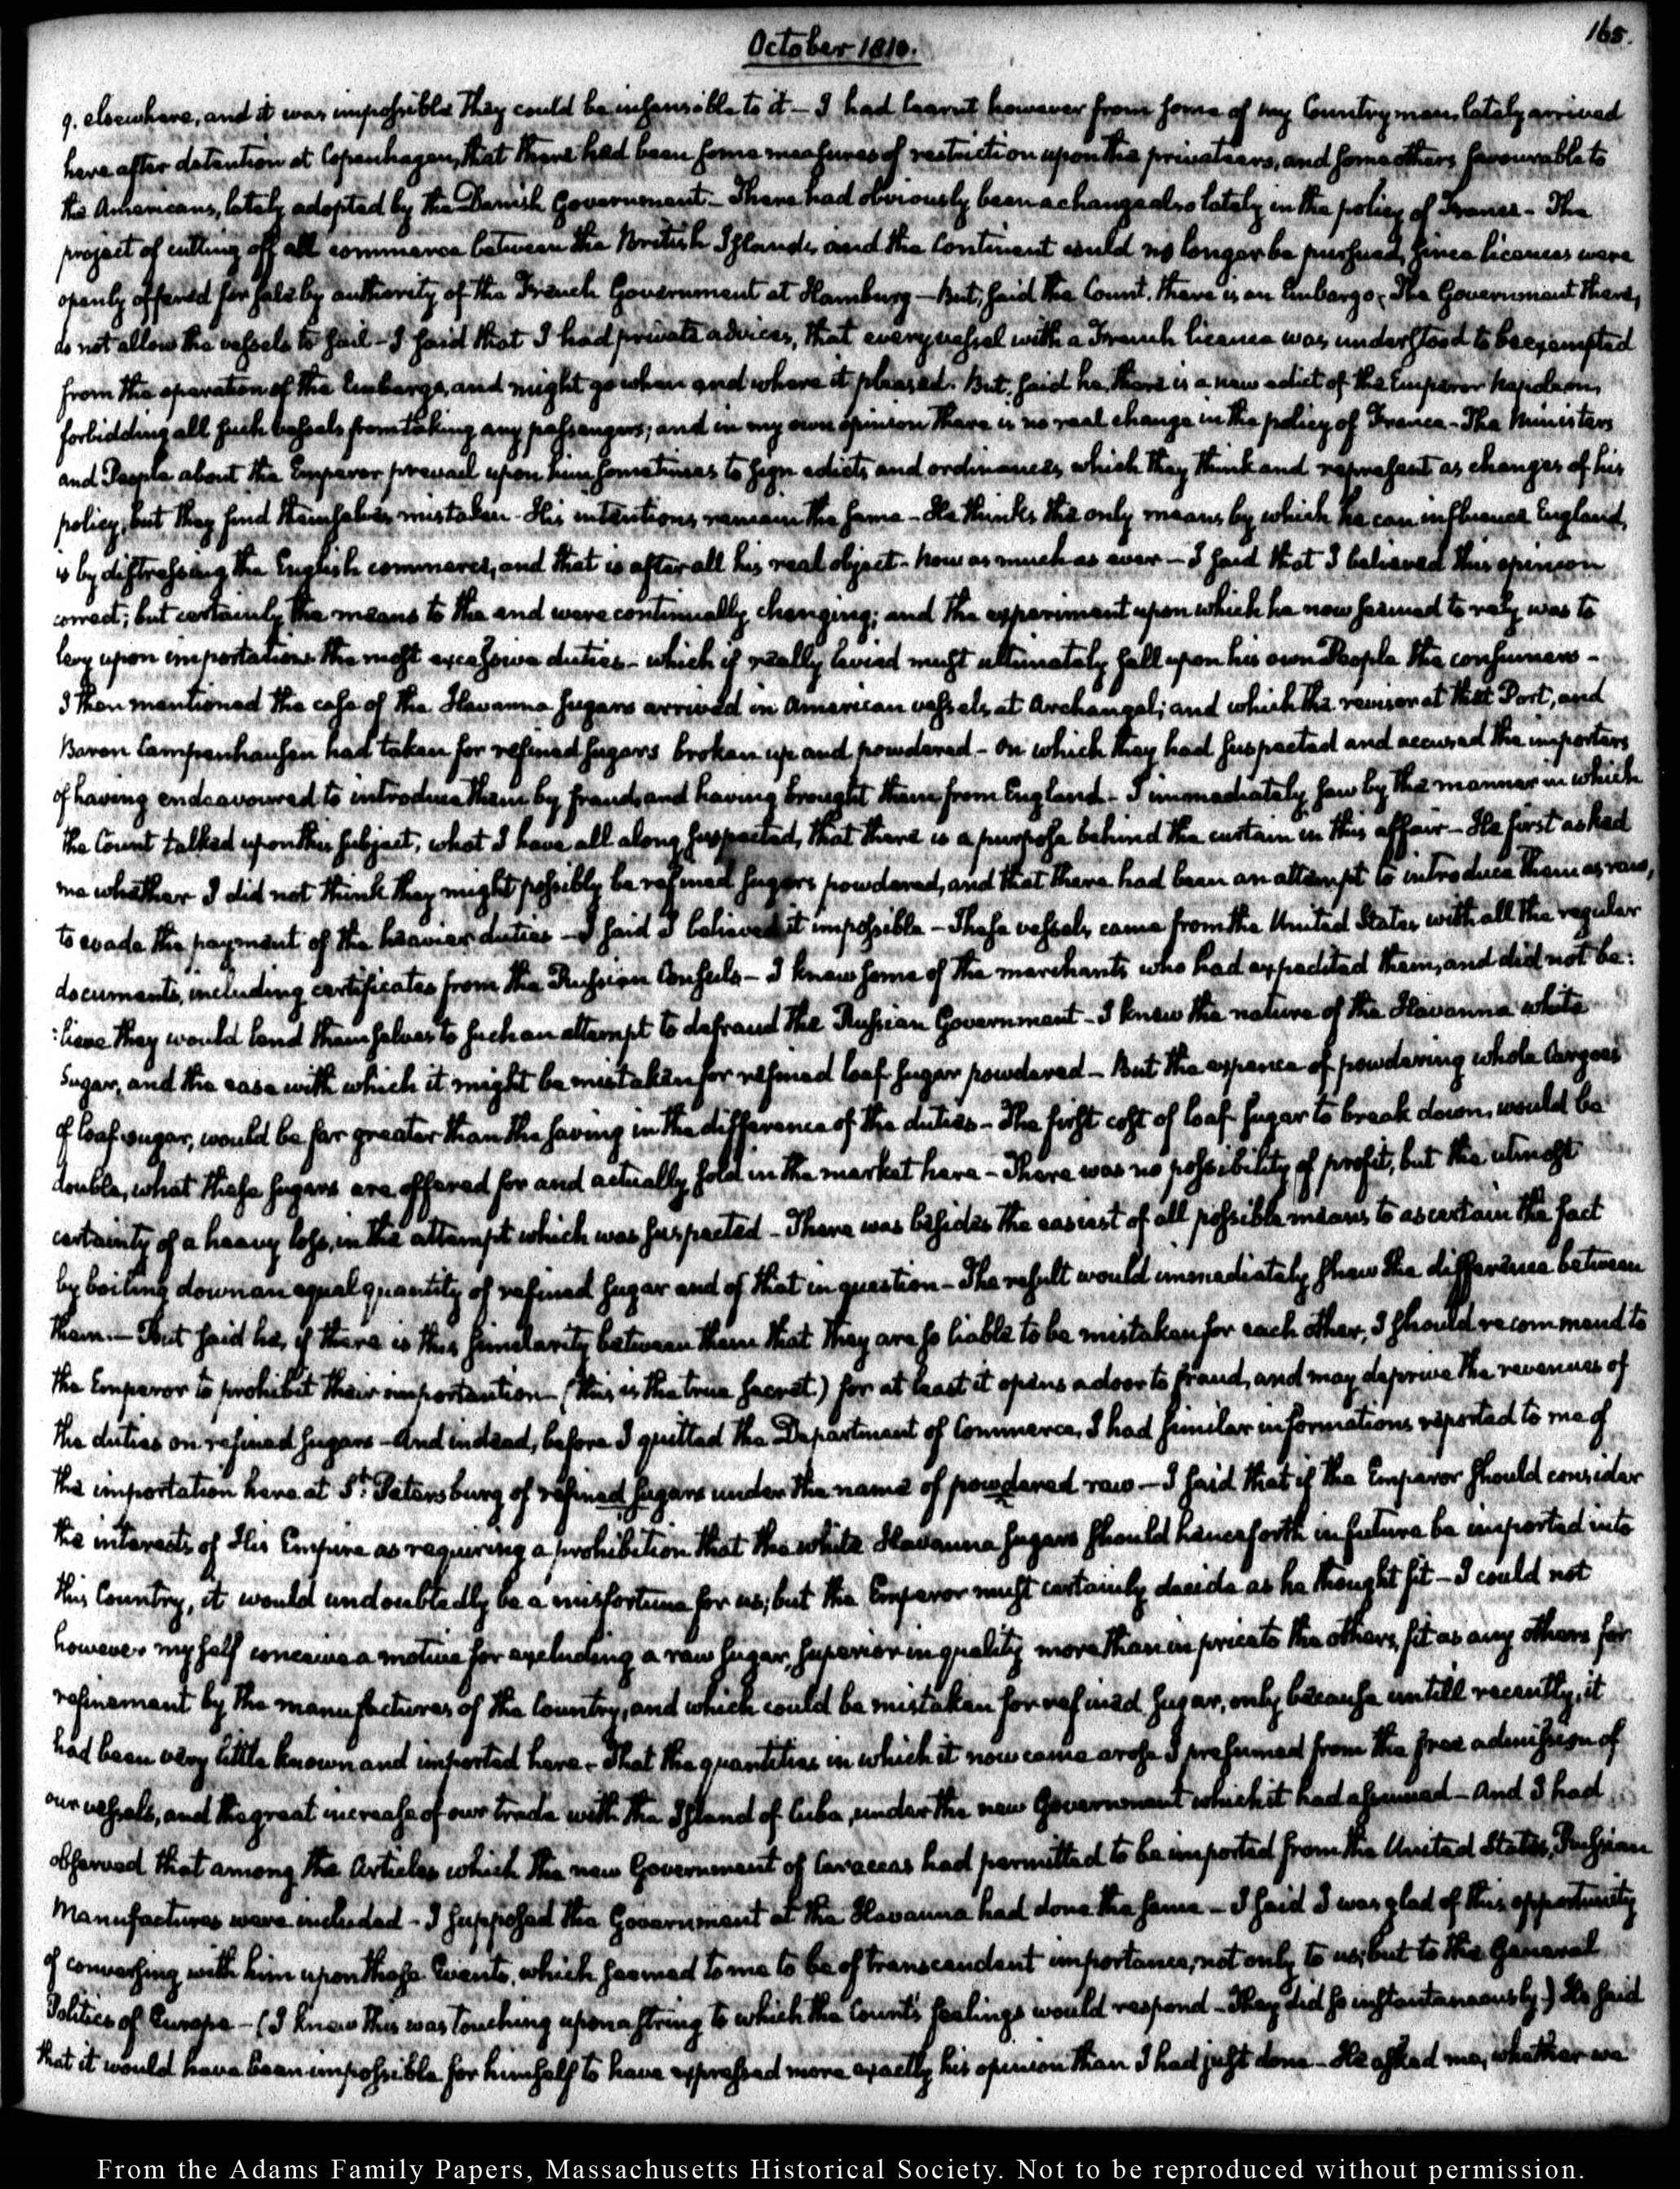 October 1810.
165.
9. elsewhere, and it was impossible they could be insensible to it — I had learnt however from some of my Countrymen, lately arrived
here after detention at Copenhagen, that there had been some measures of restriction upon the privateers, and some others favourable to
the Americans, lately adopted by the Danish Government — There had obviously been a change also lately in the policy of France — The
project of cutting off all commerce between the British Islands and the Continent could no longer be pursued, since licences were
openly offered for sale by authority of the French Government at Hamburg — But, said the Count, there is an Embargo, The Government there,
do not allow the vessels to sail — I said that I had private advices, that every vessel with a French licence was understood to be exempted
from the operation of the Embargo, and might go when and where it pleased. But, said he, there is a new edict of the Emperor Napoleon,
forbidding all such vessels from taking any passengers; and in my own opinion there is no real change in the policy of France — The Ministers
and People about the Emperor prevail upon him sometimes to sign edicts and ordinances, which they think and represent as changes of his
policy, but they find themselves mistaken — His intentions remain the same — He thinks the only means by which he can influence England,
is by distressing the English commerce, and that is after all his real object — now as much as ever — I said that I believed this opinion
correct; but certainly the means to the end were continually changing; and the experiment upon which he now seemed to rely was to
levy upon importations the most excessive duties — which if really levied must ultimately fall upon his own People the consumers —
I then mentioned the case of the Havanna sugars arrived in American vessels at Archangel; and which the revisor at that Port, and
Baron Campenhausen had taken for refined sugars broken up and powdered — on which they had suspected and accused the importers
of having endeavoured to introduce them by fraud, and having brought them from England — I immediately saw by the manner in which
the Count talked upon this subject, what I have all along suspected, that there is a purpose behind the curtain in this affair — He first asked
me whether I did not think they might possibly be refined sugars powdered, and that there had been an attempt to introduce them as raw,
to evade the payment of the heavier duties — I said I believed it impossible — These vessels came from the United States with all the regular
documents, including certificates from the Russian Consuls — I knew some of the merchants who had expedited them, and did not be:
:lieve they would lend themselves to such an attempt to defraud the Russian Government — I knew the nature of the Havanna white
sugar, and the ease with which it might be mistaken for refined loaf sugar powdered — But the expence of powdering whole Cargoes
of loaf sugar, would be far greater than the saving in the difference of the duties — The first cost of loaf sugar to break down, would be
double, what these sugars are offered for and actually sold in the market here — There was no possibility of profit, but the utmost
certainty of a heavy loss, in the attempt which was suspected — There was besides the easiest of all possible means to ascertain the fact
by boiling down an equal quantity of refined sugar and of that in question — The result would immediately shew the difference between
them. — But said he, if there is this similarity between them that they are so liable to be mistaken for each other, I should recommend to
the Emperor to prohibit their importantion — (this is the true secret) for at least it opens a door to fraud, and may deprive the revenues of
the duties on refined sugars — And indeed, before I quitted the Department of Commerce, I had similar informations reported to me of
the importation here at St. Petersburg of refined sugars under the name of powdered raw — I said that if the Emperor should consider
the interests of His Empire as requiring a prohibition that the white Havanna sugars should henceforth in future be imported into
this Country, it would undoubtedly be a misfortune for us; but the Emperor must certainly decide as he thought fit — I could not
however myself conceive a motive for excluding a raw sugar, superior in quality more than in price to the others, fit as any others for
refinement by the manufactures of the Country, and which could be mistaken for refined sugar, only because untill recently, it
had been very little known and imported here — That the quantities in which it now came arose I presumed from the free admission of
our vessels, and the great increase of our trade with the Island of Cuba, under the new Government which it had assumed — And I had
observed that among the Articles which the new Government of Caraccas had permitted to be imported from the United States, Russian
Manufactures were included — I supposed the Government at the Havanna had done the same — I said I was glad of this opportunity
of conversing with him upon those Events, which seemed to me to be of transcendent importance, not only to us, but to the General
Politics of Europe — (I knew this was touching upon a string to which the Count's feelings would respond — They did so instantaneously.) He said
that it would have been impossible for himself to have expressed more exactly his opinion than I had just done — He asked me, whether we
From the Adams Family Papers, Massachusetts Historical Society. Not to be reproduced without permission.